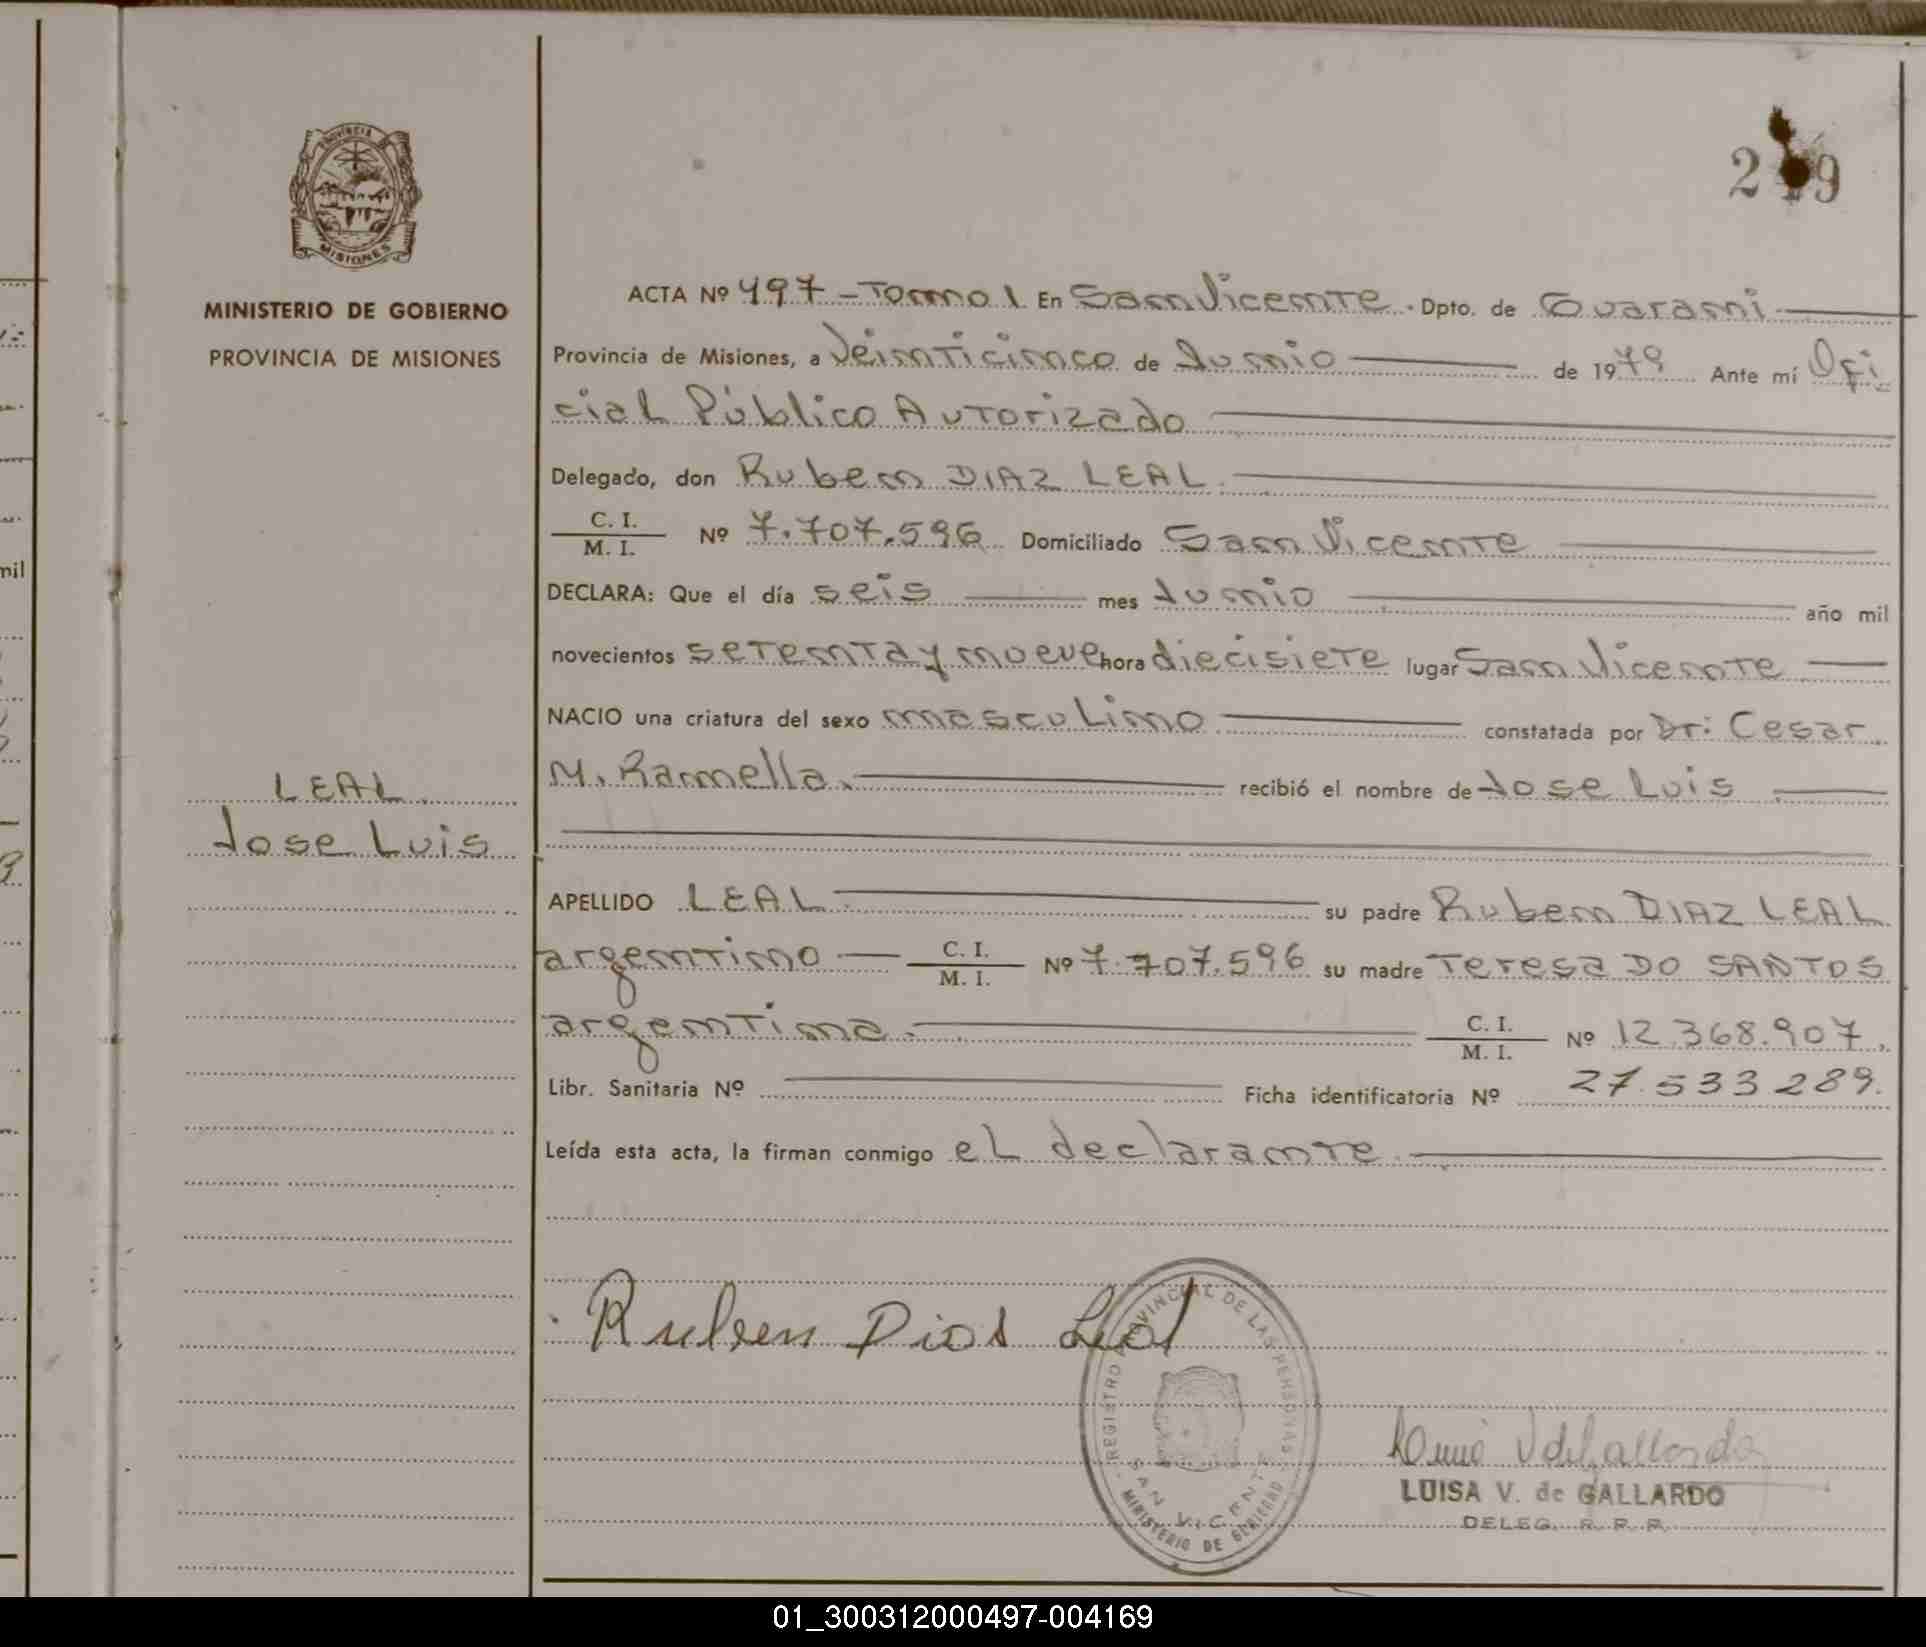 PROVINCIA
MISIONES
MINISTERIO DE GOBIERNO
PROVINCIA DE MISIONES
LEAL
Jose Luis
2 9
ACTA Nº 497 - Tomo 1 En San Vicente. Dpto. de Guarani
Provincia de Misiones, a Veinticinco de Junio de 1979 Ante mí Ofi
cial Público Autorizado
Delegado, don Ruben DIAZ LEAL.
C. I.
M. I. Nº 7.707.596 Domiciliado San Vicente
DECLARA: Que el día seis mes Junio año mil
novecientos setenta y nueve hora diecisiete lugar San Vicente
NACIO una criatura del sexo masculino constatada por Dr: Cesar
M. Ramella. recibió el nombre de Jose Luis
APELLIDO LEAL su padre Ruben DIAZ LEAL
argentino C. I.
M. I. Nº 7.707.596 su madre Teresa DO SANTOS
argentina. C. I.
M. I. Nº 12.368.907.
Libr. Sanitaria Nº Ficha identificatoria Nº 27.533.289.
Leída esta acta, la firman conmigo el declarante.
Ruben Dios Leal
REGISTRO PROVINCIAL DE LAS PERSONAS
SAN VICENTE
MINISTERIO DE GOBIERNO
LUISA V. de GALLARDO
DELEG. R. P. P.
01_300312000497-004169